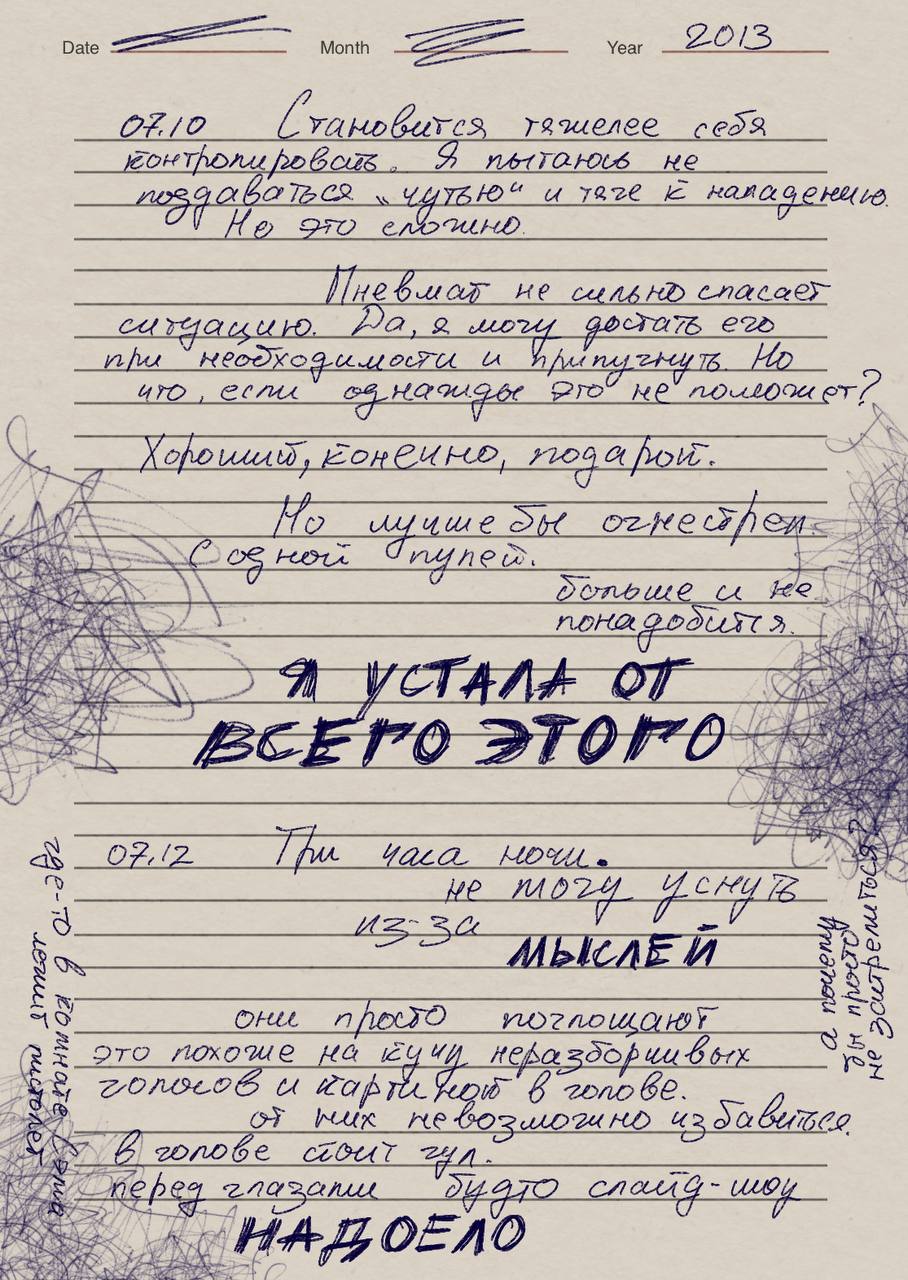 Date
Month
Year 2013
07.10 Становится тяжелее себя
контролировать. Я пытаюсь не
поддаваться „чутью“ и тяге к нападению.
Но это сложно.
Пневмат не сильно спасает
ситуацию. Да, я могу достать его
при необходимости и припугнуть. Но
что, если однажды это не поможет?
Хороший, конечно, подарок.
Но лучше бы огнестрел.
С одной пулей.
больше и не
понадобится.
Я УСТАЛА ОТ
ВСЕГО ЭТОГО
07.12 Три часа ночи.
не могу уснуть
из-за
МЫСЛЕЙ
они просто поглощают
это похоже на кучу неразборчивых
голосов и картинок в голове.
от них невозможно избавиться.
в голове стоит гул.
перед глазами будто слайд-шоу
НАДОЕЛО
где-то в комнате Сэма
лежит пистолет
а почему
бы просто
не застрелиться?